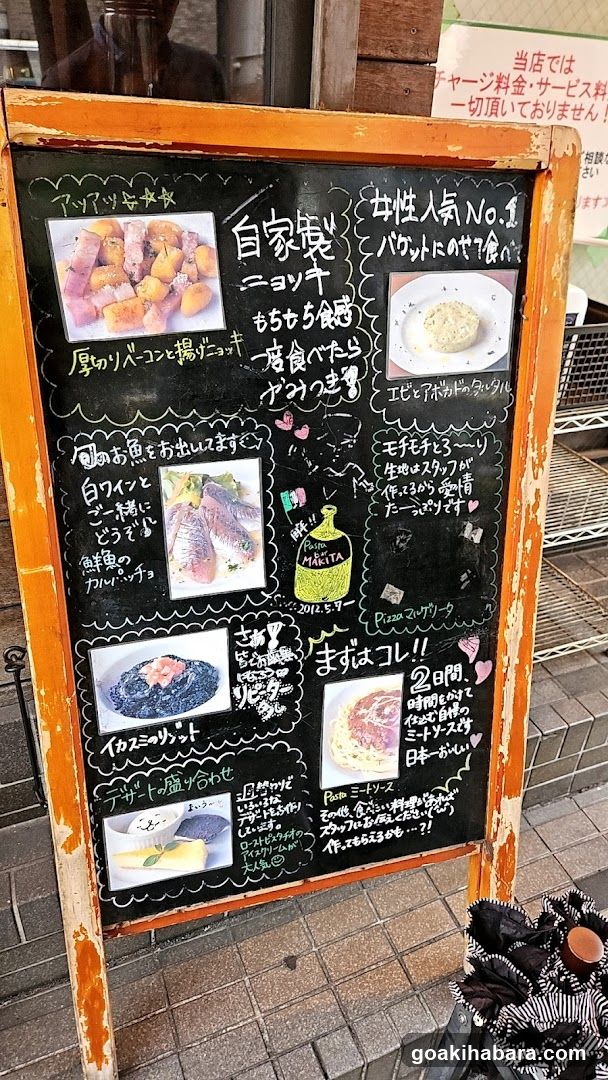 当店では
チャージ料金・サービス料
一切頂いておりません!
アツアツ☆☆☆
自家製
ニョッキ
もちもち食感
一度食べたら
やみつき!
厚切りベーコンと揚げニョッキ
女性人気No.1
バゲットにのせて食べ
エビとアボカドのタルタル
旬のお魚をお出ししてます
白ワインと
ご一緒に
どうぞ!
鮮魚の
カルパッチョ
Pasta
MAKITA
2012.5.7〜
モチモチとろ〜〜り
生地はスタッフが
作ってるから愛情
たーっぷりです
Pizza マルゲリータ
リピーター
イカスミのリゾット
まずはコレ!!
2日間、
時間をかけて
仕込む自慢の
ミートソースです
日本一おいしい
Pasta ミートソース
デザートの盛り合わせ
いろいろな
デザートをお作り
しています。
ローストピスタチオの
アイスクリームが
大人気
その他、食べたい料理があれば
スタッフにお伝えください
作ってもらえるかも…?!
goakihabara.com